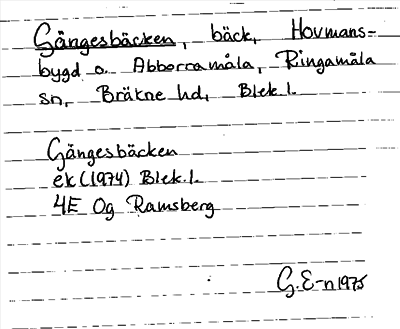 Gängesbäcken, bäck, Hovmans-
bygd o. Abborramåla, Ringamåla
sn, Bräkne hd, Blek.l.
Gängesbäcken
ek (1974) Blek.l.
4E Og Ramsberg
G.E-n 1975